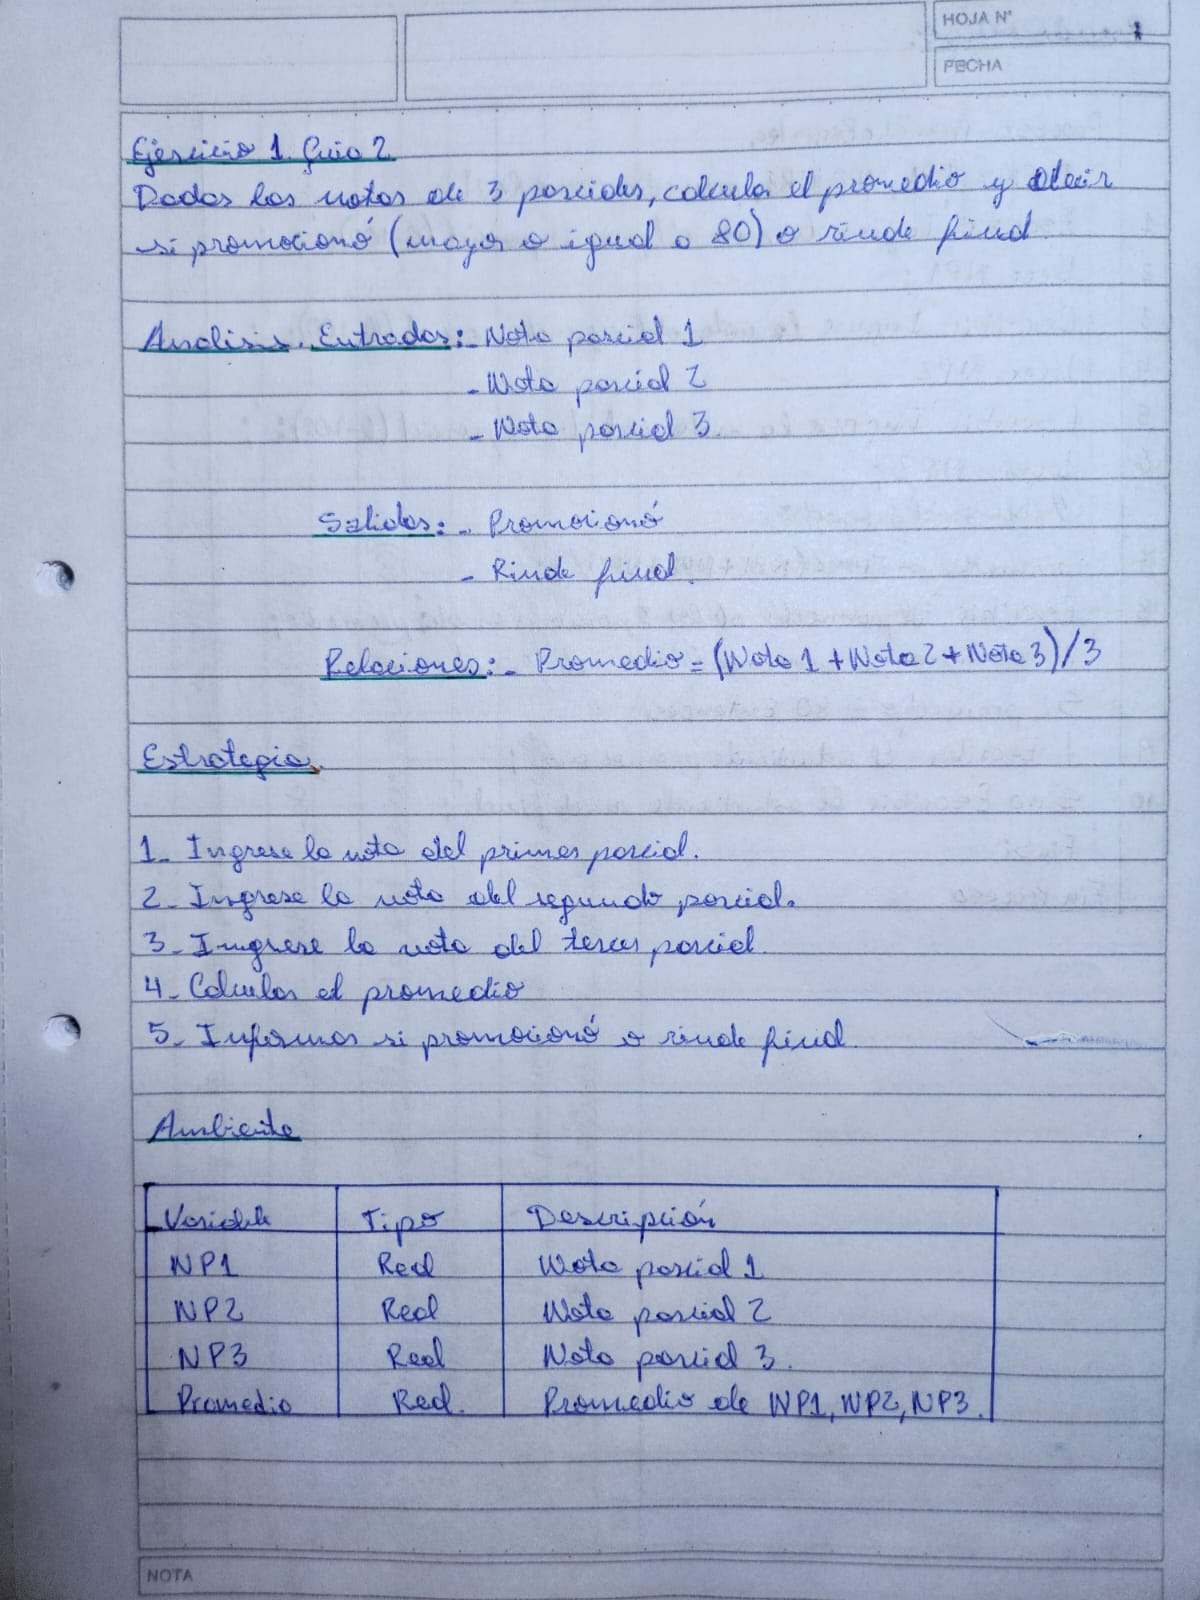 HOJA N° 1
FECHA
Ejercicio 1. Guia 2
Dados las notas de 3 parciales, calcular el promedio y decir
si promocionó (mayor o igual a 80) o rinde final
Analisis. Entradas: - Nota parcial 1
- Nota parcial 2
- Nota parcial 3.
Salidas: - Promocionó
- Rinde final.
Relaciones: - Promedio = (Nota 1 + Nota 2 + Nota 3) / 3
Estrategia.
1- Ingrese la nota del primer parcial.
2- Ingrese la nota del segundo parcial.
3- Ingrese la nota del tercer parcial.
4- Calcular el promedio
5- Informar si promocionó o rinde final.
Ambiente
Variable Tipo Descripción
NP1 Real Nota parcial 1
NP2 Real Nota parcial 2
NP3 Real Nota parcial 3.
Promedio Real. Promedio de NP1, NP2, NP3.
NOTA